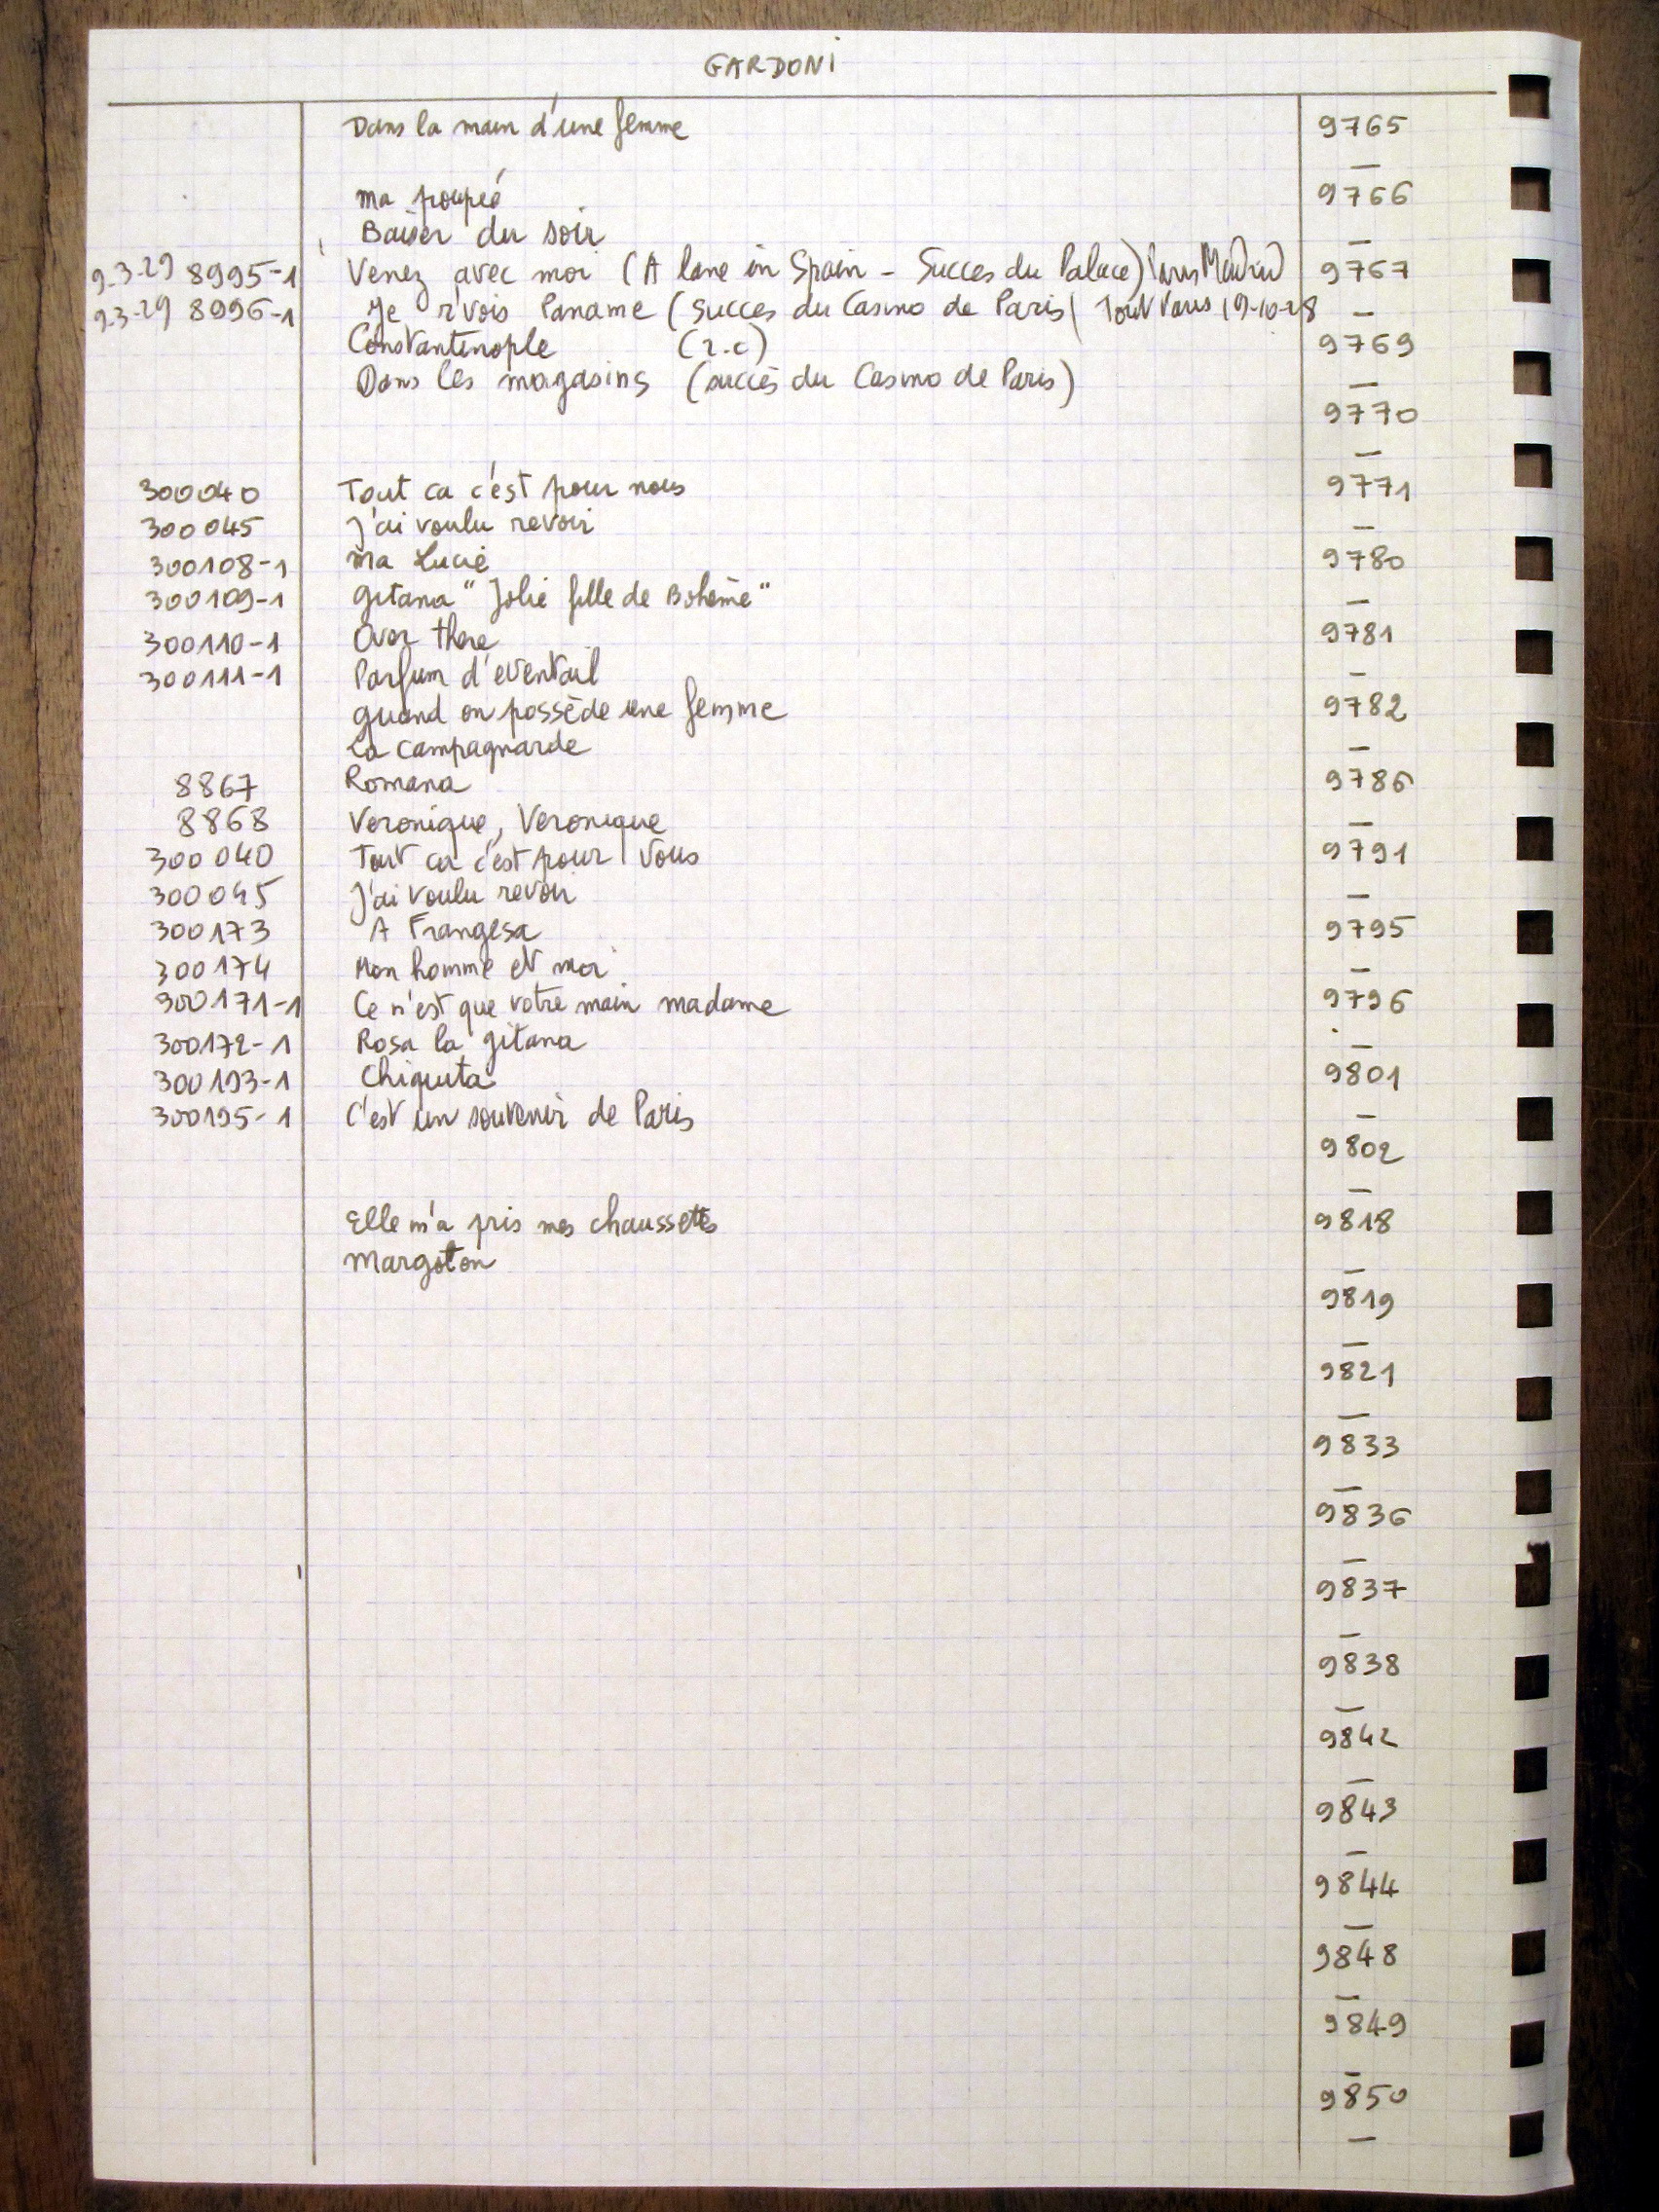 GARDONI
Dans la main d'une femme 9765
—
Ma poupée 9766
Baiser du soir
—
9-3-29 8995-1 Venez avec moi (A lane in Spain - Succes du Palace) Paris Madrid 9767
9-3-29 8996-1 Je r'vois Paname (Succes du Casino de Paris) Tout Paris 19-10-28 —
Constantinople (r.c) 9769
Dans les magasins (succès du Casino de Paris) —
9770
—
300040 Tout ca c'est pour nous 9771
300045 J'ai voulu revoir —
300108-1 Ma Lucie 9780
300109-1 Gitana "Jolie fille de Bohème" —
300110-1 Over there 9781
300111-1 Parfum d'eventail —
quand on possède une femme 9782
La campagnarde —
8867 Romana 9786
8868 Veronique, Veronique —
300040 Tout ca c'est pour Vous 9791
300045 J'ai voulu revoir —
300173 A Frangesa 9795
300174 Mon homme et moi —
300171-1 Ce n'est que votre main madame 9796
300172-1 Rosa la gitana —
300193-1 Chiquita 9801
300195-1 C'est un souvenir de Paris —
9802
—
Elle m'a pris mes chaussettes 9818
Margoton —
9819
—
9821
—
9833
—
9836
—
9837
—
9838
—
9842
—
9843
—
9844
—
9848
—
9849
—
9850
—